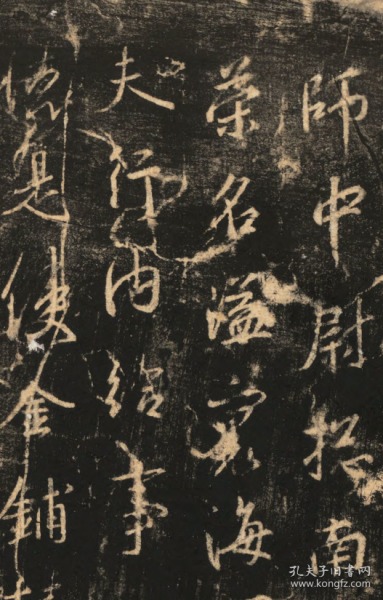 師中尉招南
榮名溢寰海
夫行内給事
伽是使金鋪
孔夫子旧书网
www.kongfz.com